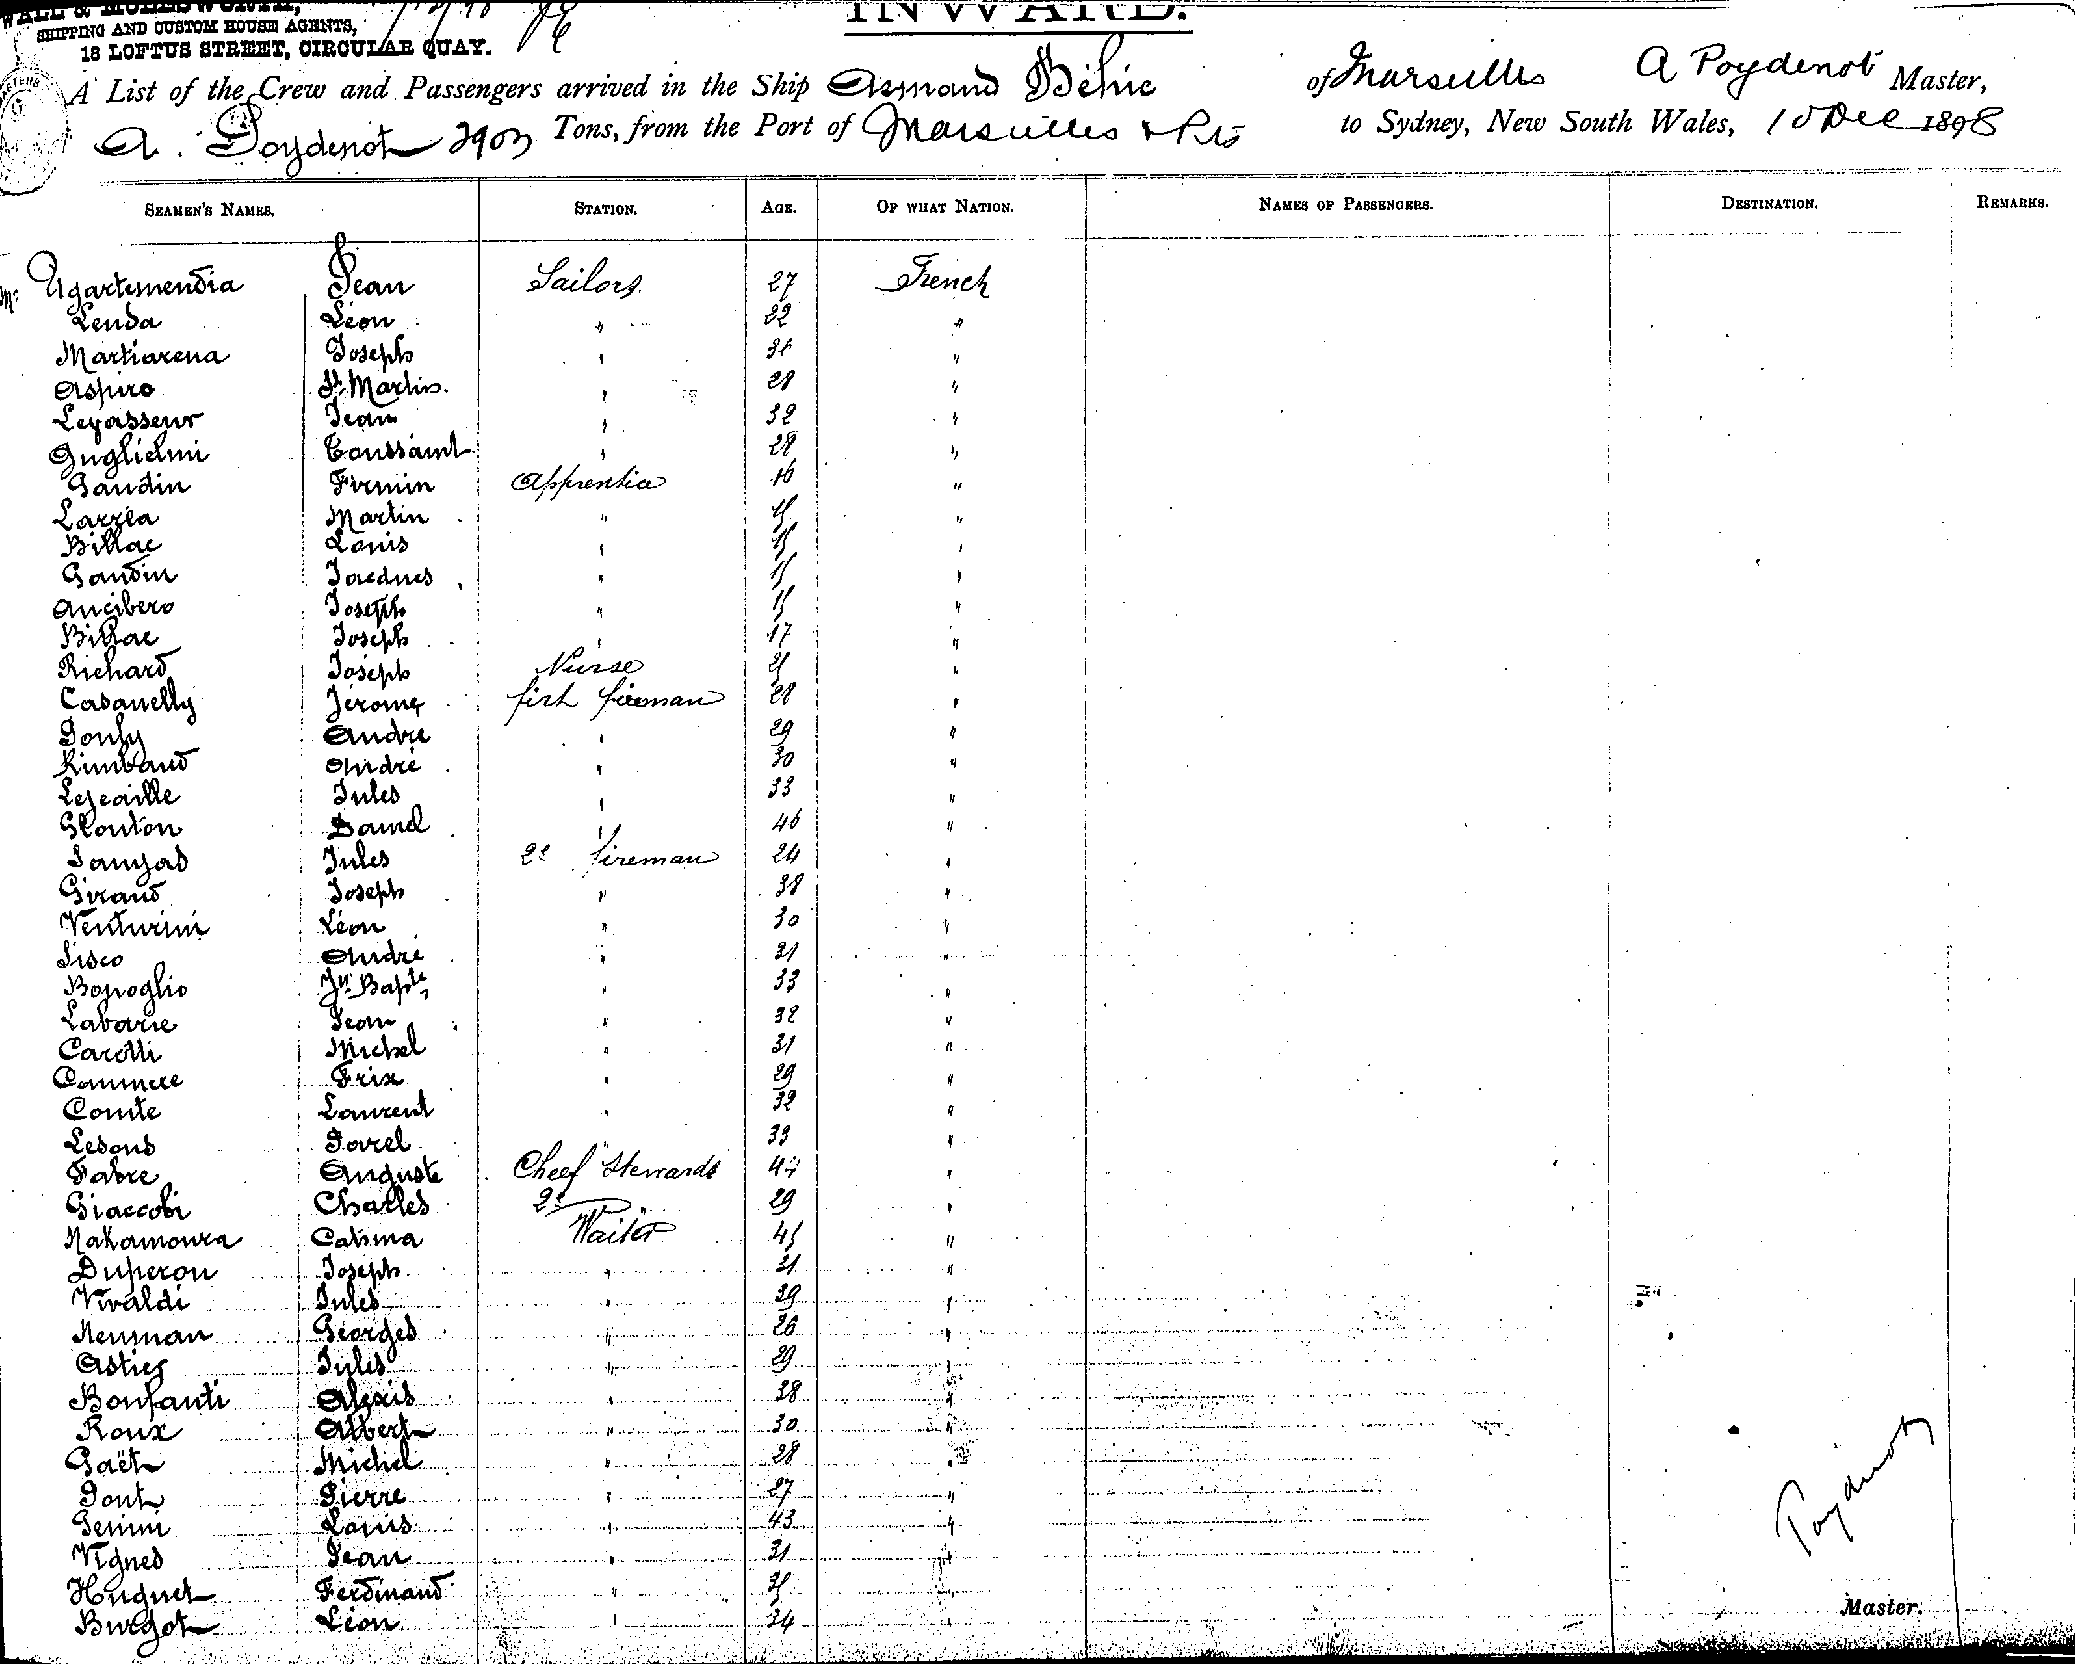 WALL & MOLESWORTH,
SHIPPING AND CUSTOM HOUSE AGENTS,
18 LOFTUS STREET, CIRCULAR QUAY.
INWARD.
A List of the Crew and Passengers arrived in the Ship Armand Béhic of Marseilles A Poydenot Master,
A. Poydenot 3903 Tons, from the Port of Marseilles & Pts to Sydney, New South Wales, 10 Dec 1898
SEAMEN'S NAMES. STATION. AGE. OF WHAT NATION. NAMES OF PASSENGERS. DESTINATION. REMARKS.
Ugartemendia Jean Sailors 27 French
Lenda Léon " 32 "
Martiarena Joseph " "
Aspiro St Martin " 28 "
Levasseur Jean " 32 "
Guglielmi Toussaint " 28 "
Gaudin Firmin Apprentice 16 "
Larréa Martin " 15 "
Billac Louis " 15 "
Gaudin Jacques " 15 "
Ancibero Joseph " 15 "
Billac Joseph " 17 "
Richard Joseph Nurse "
Casanelly Jérome first fireman 28 "
Pouly André " 29 "
Rimbaud André " 30 "
Lescaille Jules " 33 "
Glouton Daniel " 46 "
Jules 2e fireman 24 "
Giraud Joseph " 38 "
Venturini Léon " 30 "
Sisco André " 31 "
Bonoglio Jn Bapte " 33 "
Labarie Jean " 32 "
Carotti Michel " 31 "
Frix " 29 "
Comte Laurent " 32 "
Lesous " 33 "
Fabre Auguste Cheef Stewards "
Giaccobi Charles 2e " 29 "
Nakamoura Catsma Waiter 45 "
Duperou Joseph " 31 "
Vivaldi Jules " 39 "
Neuman Georges " 26 "
Astier Jules " 29 "
Bonfanti Alexis " 38 "
Roux Albert " 30 "
Gaët Michel " 28 "
Pont Pierre " 27 "
Genini Louis " 43 "
Vignes Jean " 31 "
Huguet Ferdinand " 35 "
Burgot Léon " 34 "
Poydenot
Master.